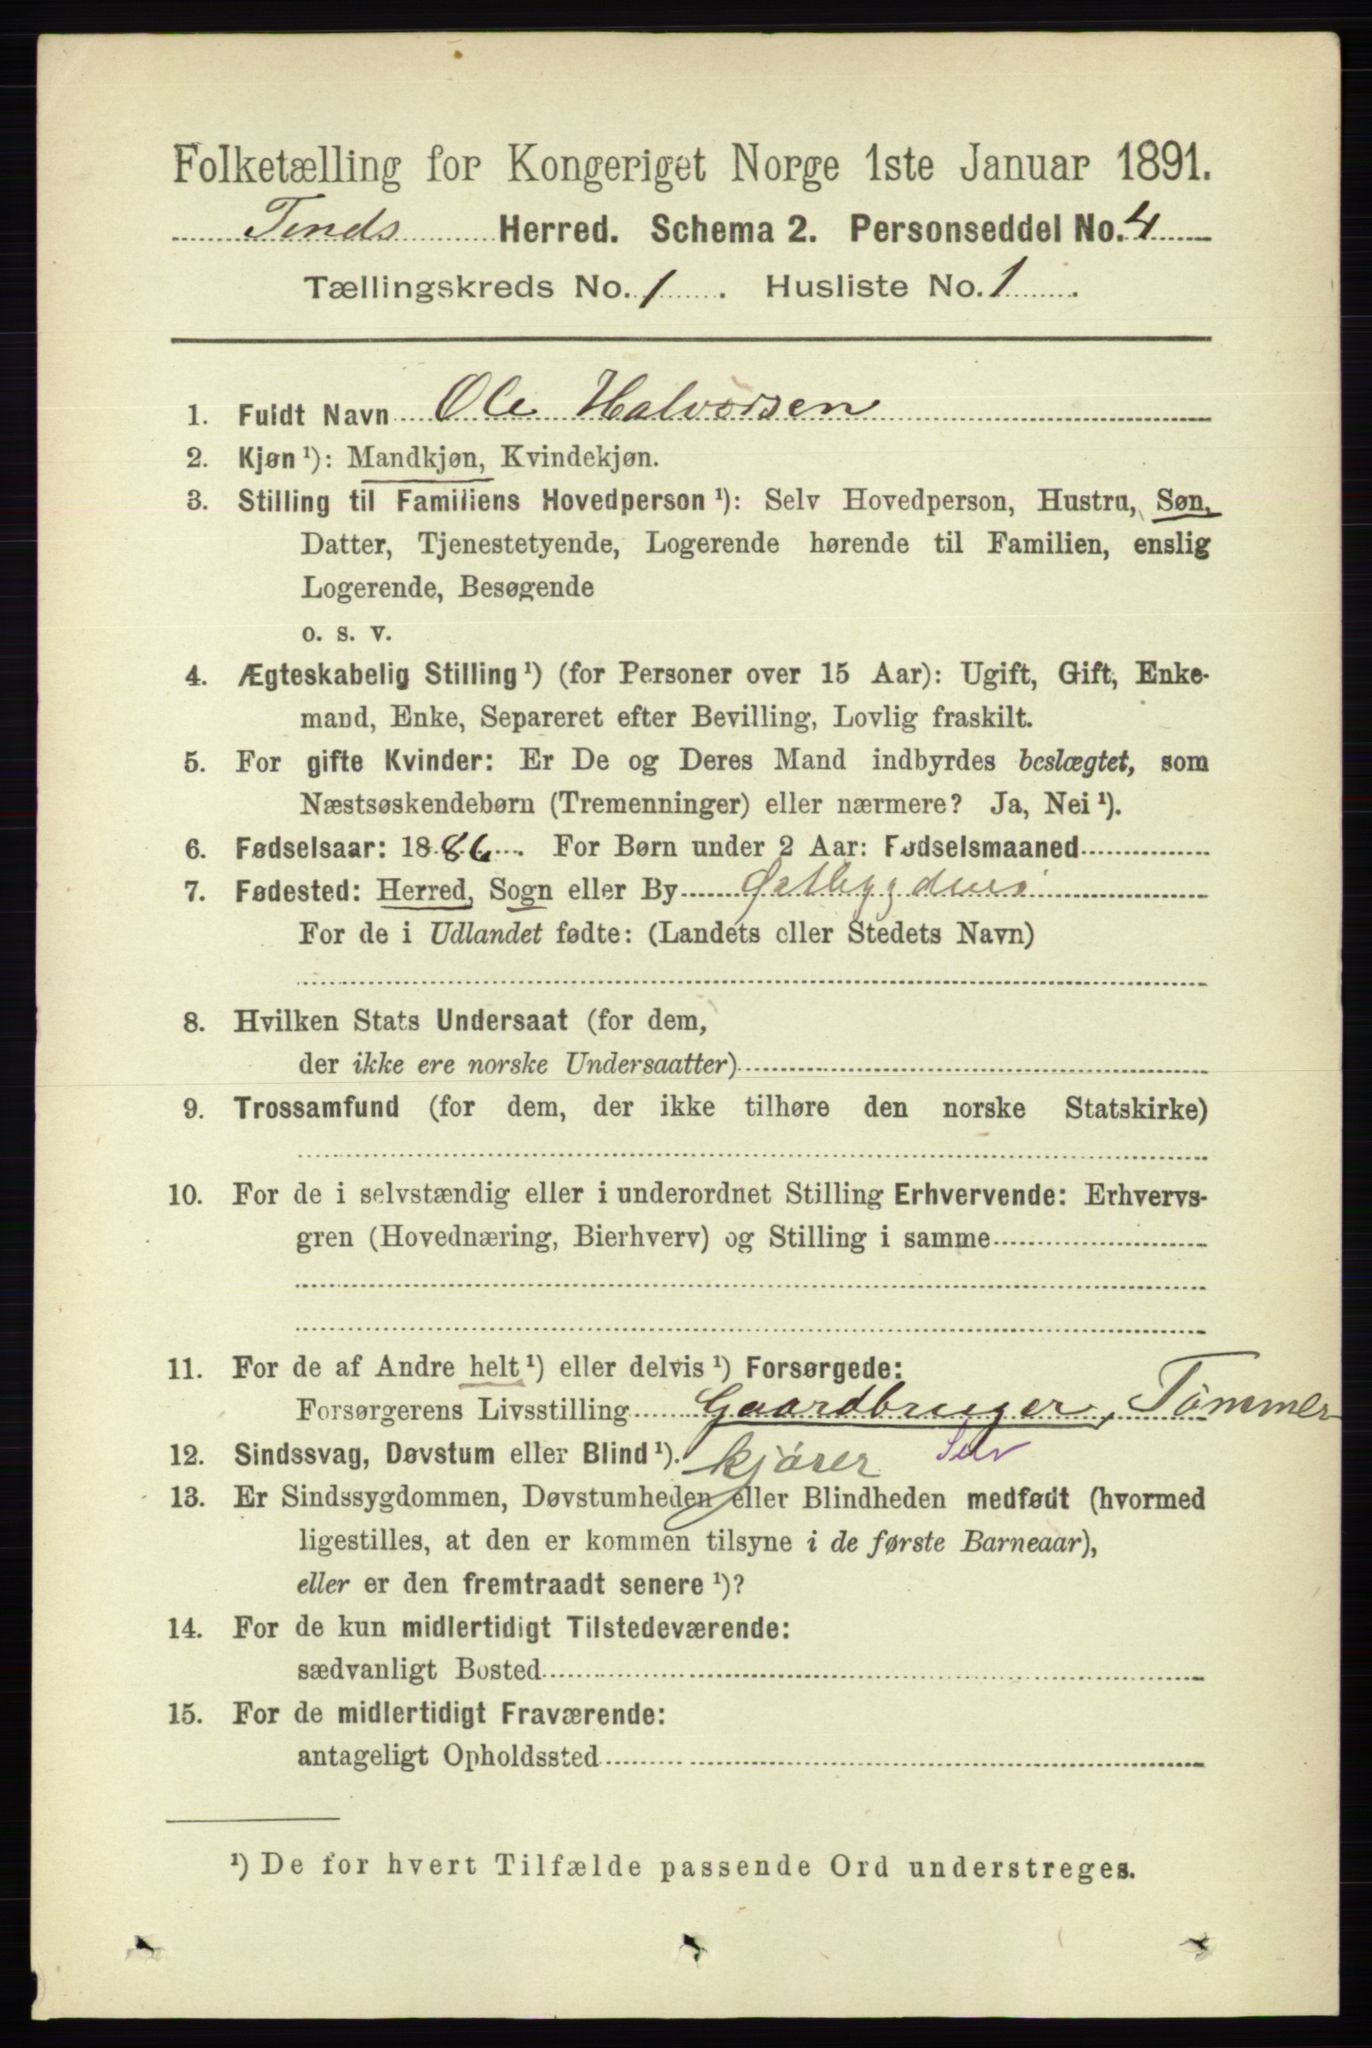 Folketælling for Kongeriget Norge 1ste Januar 1891.
Tinds Herred. Schema 2. Personseddel No. 4
Tællingskreds No. 1. Husliste No. 1.
1. Fuldt Navn Ole Halvorsen
2. Kjøn ¹): Mandkjøn, Kvindekjøn.
3. Stilling til Familiens Hovedperson ¹): Selv Hovedperson, Hustru, Søn,
Datter, Tjenestetyende, Logerende hørende til Familien, enslig
Logerende, Besøgende
o. s. v.
4. Ægteskabelig Stilling ¹) (for Personer over 15 Aar): Ugift, Gift, Enke-
mand, Enke, Separeret efter Bevilling, Lovlig fraskilt.
5. For gifte Kvinder: Er De og Deres Mand indbyrdes beslægtet, som
Næstsøskendebørn (Tremenninger) eller nærmere? Ja, Nei ¹).
6. Fødselsaar: 1886. For Børn under 2 Aar: Fødselsmaaned
7. Fødested: Herred, Sogn eller By Østbygdens
For de i Udlandet fødte: (Landets eller Stedets Navn)
8. Hvilken Stats Undersaat (for dem,
der ikke ere norske Undersaatter)
9. Trossamfund (for dem, der ikke tilhøre den norske Statskirke)
10. For de i selvstændig eller i underordnet Stilling Erhvervende: Erhvervs-
gren (Hovednæring, Bierhverv) og Stilling i samme
11. For de af Andre helt ¹) eller delvis ¹) Forsørgede:
Forsørgerens Livsstilling Gaardbruger, Tømmer
12. Sindssvag, Døvstum eller Blind ¹). kjører Selv
13. Er Sindssygdommen, Døvstumheden eller Blindheden medfødt (hvormed
ligestilles, at den er kommen tilsyne i de første Barneaar),
eller er den fremtraadt senere ¹)?
14. For de kun midlertidigt Tilstedeværende:
sædvanligt Bosted
15. For de midlertidigt Fraværende:
antageligt Opholdssted
¹) De for hvert Tilfælde passende Ord understreges.